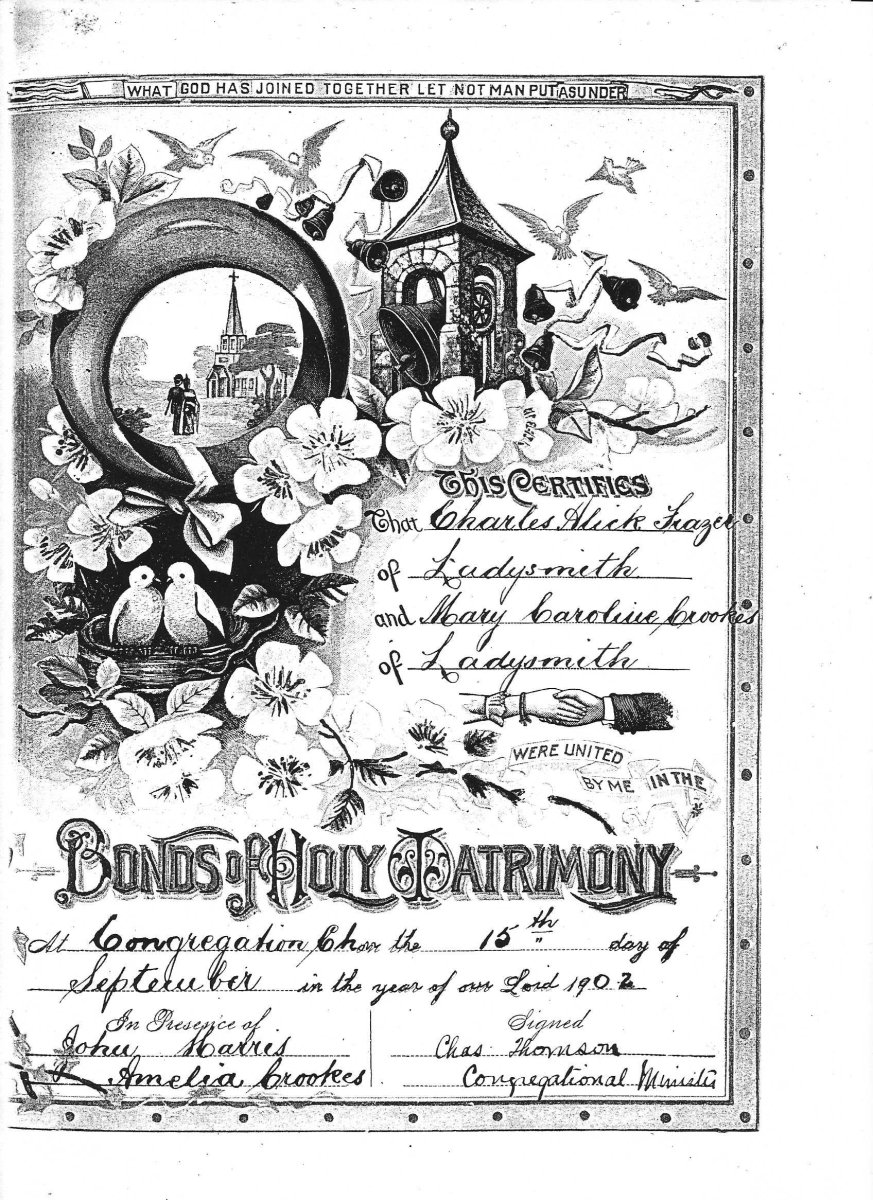 WHAT GOD HAS JOINED TOGETHER LET NOT MAN PUT ASUNDER
THIS CERTIFIES
That Charles Alick Frazer
of Ladysmith
and Mary Caroline Crookes
of Ladysmith
WERE UNITED
BY ME IN THE
BONDS OF HOLY MATRIMONY
At Congregation Ch on the 15th day of
September in the year of our Lord 1902
In Presence of
John Harris
Amelia Crookes
Signed
Chas Thomson
Congregational Minister